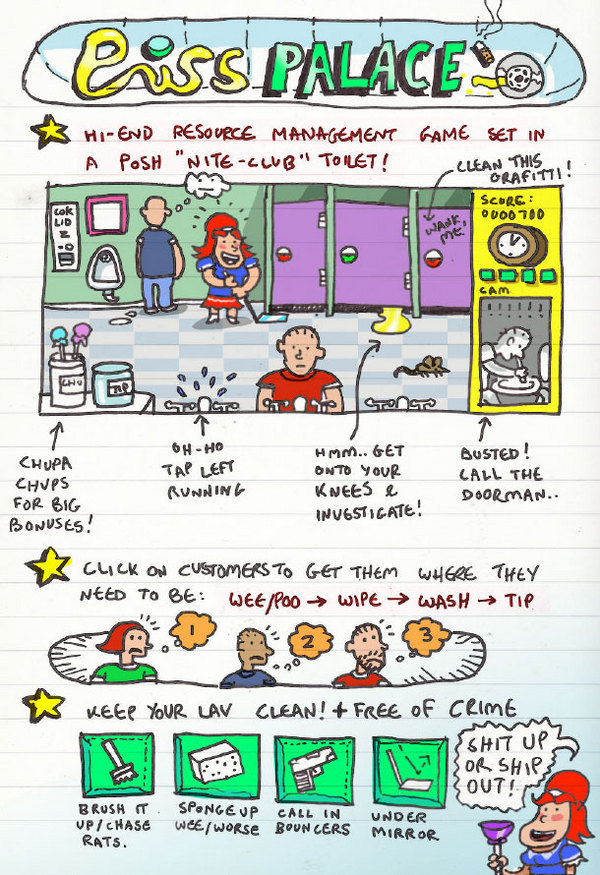 PISS PALACE
HI-END RESOURCE MANAGEMENT GAME SET IN
A POSH "NITE-CLUB" TOILET!
CLEAN THIS
GRAFITTI!
WANK
ME
SCORE:
0000700
CAM
CHU
TIP
CHUPA
CHUPS
FOR BIG
BONUSES!
OH-HO
TAP LEFT
RUNNING
HMM.. GET
ONTO YOUR
KNEES &
INVESTIGATE!
BUSTED!
CALL THE
DOORMAN..
CLICK ON CUSTOMERS TO GET THEM WHERE THEY
NEED TO BE: WEE/POO → WIPE → WASH → TIP
1
2
3
KEEP YOUR LAV CLEAN! + FREE OF CRIME
BRUSH IT
UP/CHASE
RATS.
SPONGE UP
WEE/WORSE
CALL IN
BOUNCERS
UNDER
MIRROR
SHIT UP
OR SHIP
OUT!